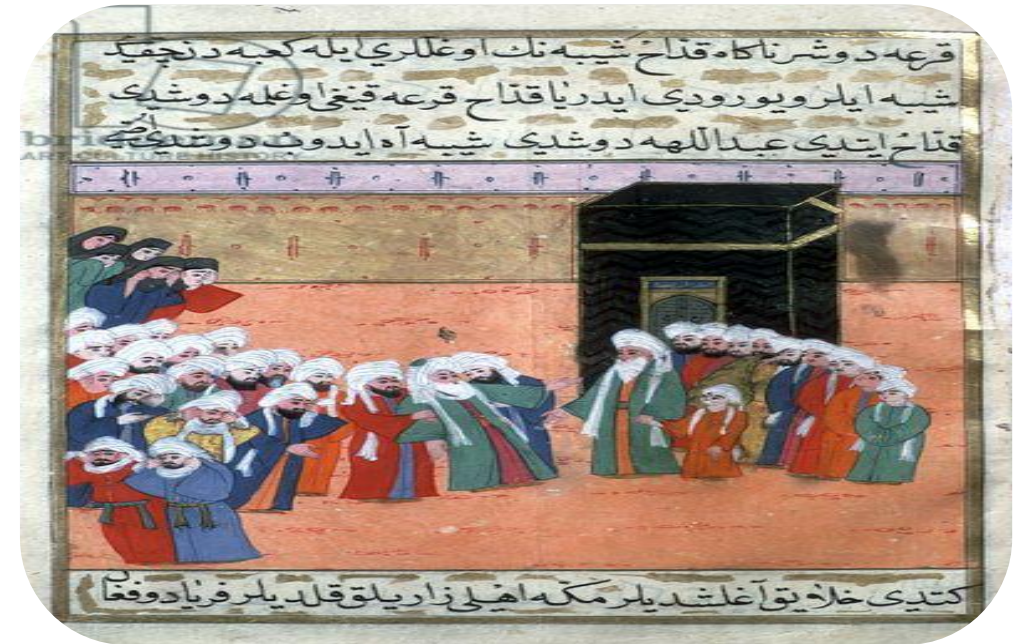 قرعه دوشرناكاه قداح شيبه نك اوغللري ايله كعبه دن چقيدى
شيبه ايلر ويورودي ايدريا قداح قرعه قيغي اوغلمه دوشدي
قداح ايتدي عبد اللهه دوشدي شيبه آه ايدوب دوشدي
كتدي خلايق آغلشديلر مكه اهلي زاريلق قلديلر فرياد و فغان